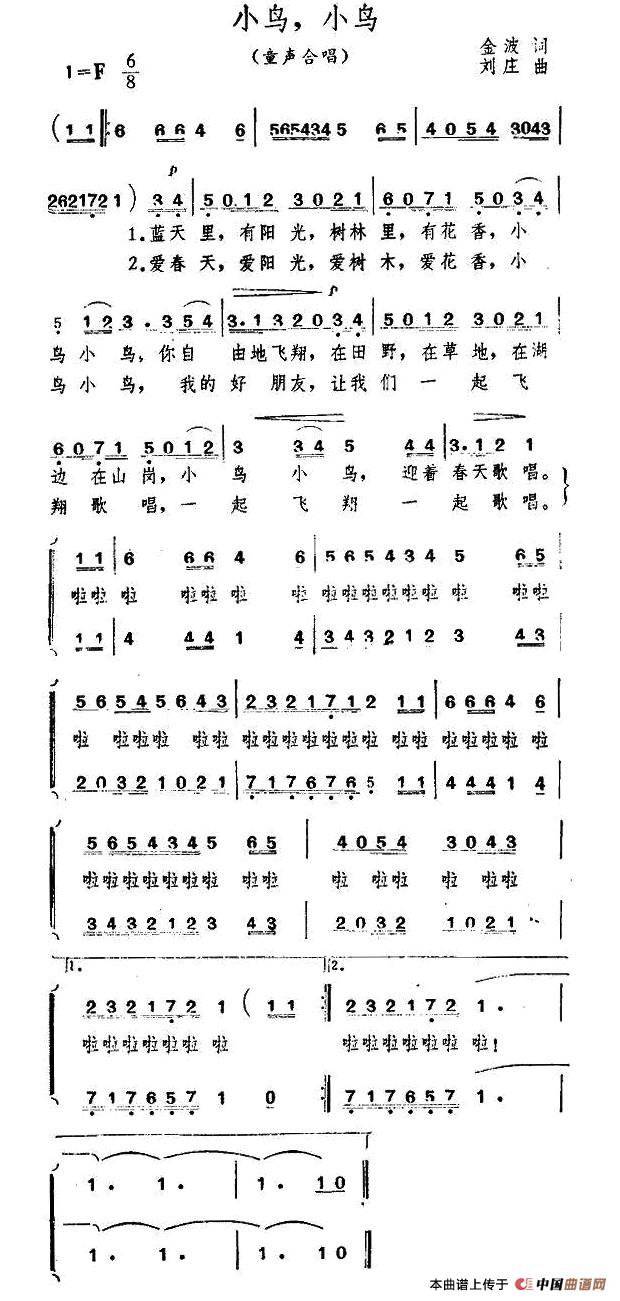 小鸟，小鸟
（童声合唱）
金波 词
刘庄 曲
1=F 6/8
（1 1 6 6 6 4 6 5 6 5 4 3 4 5 6 5 4 0 5 4 3 0 4 3
2 6 2 1 7 2 1）3 4 5 0 1 2 3 0 2 1 6 0 7 1 5 0 3 4
p
1.蓝天里，有阳光，树林里，有花香，小
2.爱春天，爱阳光，爱树木，爱花香，小
p
5 1 2 3. 3 5 4 3. 1 3 2 0 3 4 5 0 1 2 3 0 2 1
鸟小鸟，你自由地飞翔，在田野，在草地，在湖
鸟小鸟，我的好朋友，让我们一起飞
6 0 7 1 5 0 1 2 3 3 4 5 4 4 3. 1 2 1
边在山岗，小鸟小鸟，迎着春天歌唱。
翔歌唱，一起飞翔一起歌唱。
1 1 6 6 6 4 6 5 6 5 4 3 4 5 6 5
啦啦啦 啦啦啦 啦 啦啦啦啦啦啦啦 啦啦
1 1 4 4 4 1 4 3 4 3 2 1 2 3 4 3
5 6 5 4 5 6 4 3 2 3 2 1 7 1 2 1 1 6 6 6 4 6
啦 啦啦啦 啦啦啦 啦啦啦啦啦啦 啦啦 啦啦啦啦啦
2 0 3 2 1 0 2 1 7 1 7 6 7 6 5 1 1 4 4 4 1 4
5 6 5 4 3 4 5 6 5 4 0 5 4 3 0 4 3
啦啦啦啦啦啦啦 啦啦 啦 啦啦 啦 啦啦
3 4 3 2 1 2 3 4 3 2 0 3 2 1 0 2 1
1. 2.
2 3 2 1 7 2 1（1 1 2 3 2 1 7 2 1.
啦啦啦啦啦啦 啦 啦啦啦啦啦啦 啦！
7 1 7 6 5 7 1 0 7 1 7 6 5 7 1.
1. 1. 1. 1 0
1. 1. 1. 1 0
本曲谱上传于 中国曲谱网